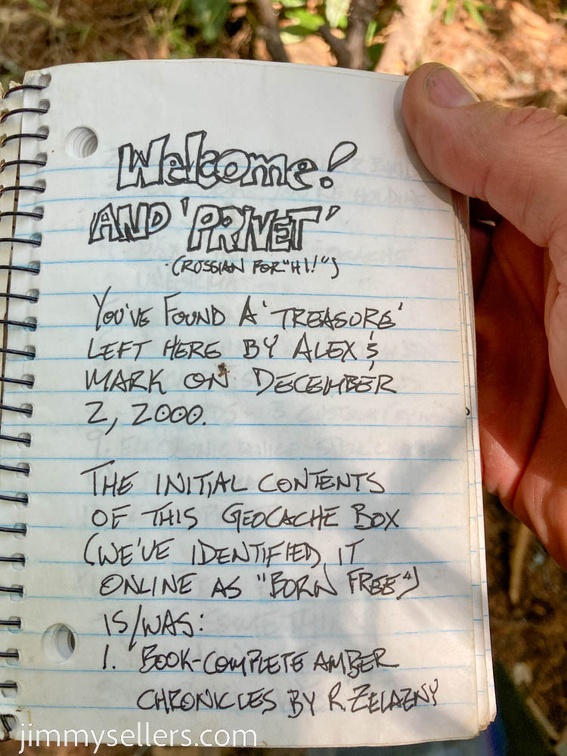 Welcome!
AND 'PRIVET'
(RUSSIAN FOR "HI!")
YOU'VE FOUND A 'TREASURE'
LEFT HERE BY ALEX &
MARK ON DECEMBER
2, 2000.
THE INITIAL CONTENTS
OF THIS GEOCACHE BOX
(WE'VE IDENTIFIED IT
ONLINE AS "BORN FREE")
IS/WAS:
1. BOOK-COMPLETE AMBER
CHRONICLES BY R. ZELAZNY
jimmysellers.com